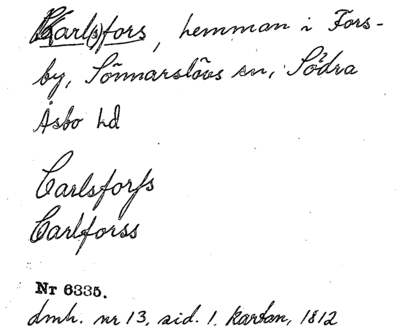 Karl(s)fors, hemman i Fors-
by, Sönnarslövs sn, Södra
Åsbo hd
Carlsforss
Carlforss
Nr 6335.
dmh. nr 13, sid. 1, kartan, 1812